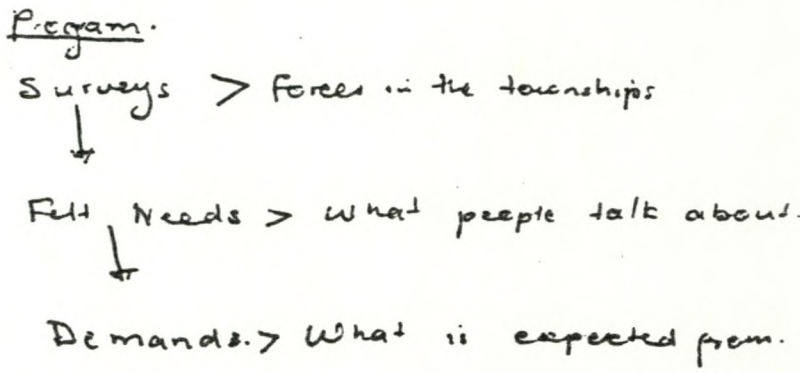 Program.
Surveys > Forces in the townships
Felt Needs > What people talk about.
Demands. > What is expected from.